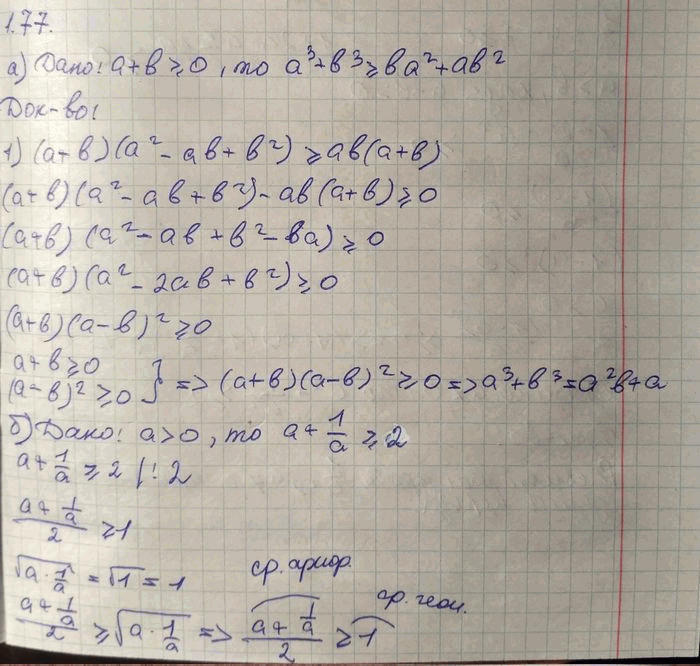 1.77.
а) Дано: a+b≥0, то a³+b³≥ba²+ab²
Док-во:
1) (a+b)(a²-ab+b²)≥ab(a+b)
(a+b)(a²-ab+b²)-ab(a+b)≥0
(a+b)(a²-ab+b²-ba)≥0
(a+b)(a²-2ab+b²)≥0
(a+b)(a-b)²≥0
a+b≥0
(a-b)²≥0 } => (a+b)(a-b)²≥0 => a³+b³=a²b+a
б) Дано: a>0, то a+1/a≥2
a+1/a≥2 |:2
(a+1/a)/2≥1
√(a·1/a)=√1=1
ср. арифр.
ср. геом.
(a+1/a)/2≥√(a·1/a) => (a+1/a)/2≥1